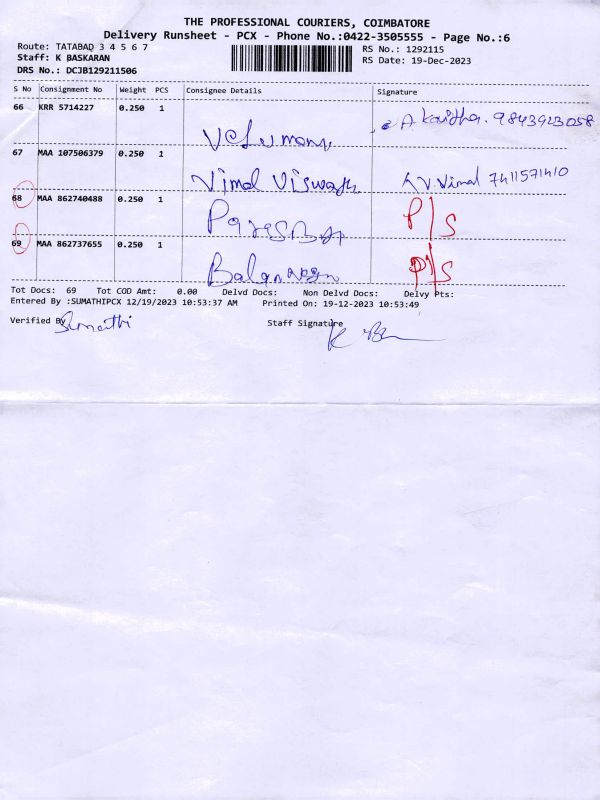 THE PROFESSIONAL COURIERS, COIMBATORE
Delivery Runsheet - PCX - Phone No.:0422-3505555 - Page No.:6
Route: TATABAD 3 4 5 6 7
RS No.: 1292115
Staff: K BASKARAN
RS Date: 19-Dec-2023
DRS No.: DCJB129211506
S No Consignment No Weight PCS Consignee Details Signature
66 KRR 5714227 0.250 1 Velumani A Kavitha. 9843923058
67 MAA 107506379 0.250 1 Vimal Viswash K V. Vimal 7411571410
68 MAA 862740488 0.250 1 P/S
69 MAA 862737655 0.250 1 P/S
Tot Docs: 69 Tot COD Amt: 0.00 Delvd Docs: Non Delvd Docs: Delvy Pts:
Entered By :SUMATHIPCX 12/19/2023 10:53:37 AM Printed On: 19-12-2023 10:53:49
Verified By Sumathi Staff Signature